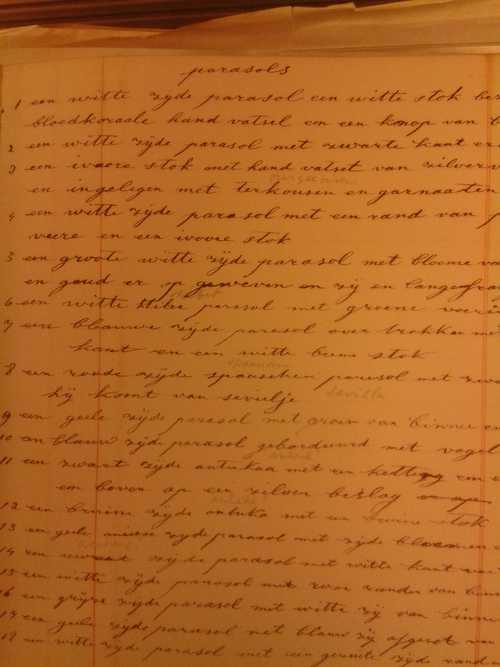 parasols
1 een witte zijde parasol een witte stok
bloedkoraale hand vatsel em een knop van
2 een witte zijde parasol met zwarte kant
3 een ivoore stok met hand vatset van zilver
en ingelegen met terkousen en garnaaten
4 een witte zijde parasol met een rand van
veere en een ivoore stok
5 een groote witte zijde parasol met bloeme
en goud er op geweven en zij en lange
6 een witte parasol met groene
7 een blauwe zijde parasol over trokken
kant en een witte beene stok
8 een roode zijde spaanschen parasol met
hij komt van sevielje Sevilla
9 een geele zijde parasol met groen van binne
10 en blauw zijde parasol geborduurd met vogel
11 een zwart zijde antukaa met een ketting
em boven op een zilver beslag
12 een bruine zijde antuka met een bruine stok
13 een geele zyde parasol met zijde
14 een zijde parasol met witte kant
15 een witte zijde parasol met roose randen van
16 een grijze zijde parasol met witte zij van binne
17 een geele zijde parasol met blauw zij afgezet
18 een witte zijde parasol met een geruite zijde